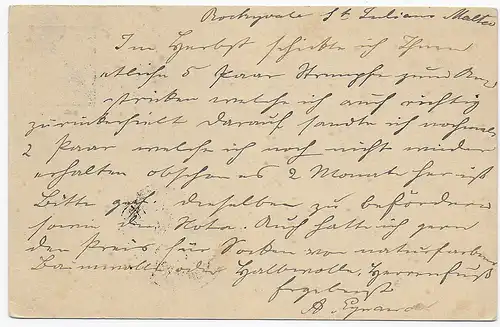 Rockyvale St Julians Malta
Im Herbst schickte ich Ihnen
etliche 5 Paar Strümpfe zum An-
stricken welche ich auch richtig
zurückerhielt darauf sandte ich nochmals
2 Paar welche ich noch nicht wieder
erhalten obschon es 2 Monate her ist
Bitte gefl. dieselben zu befördern
sowie die Nota. Auch hätte ich gern
den Preis für Socken von naturfarbener
Baumwolle oder Halbwolle. Herrenfuß
Ergebenst